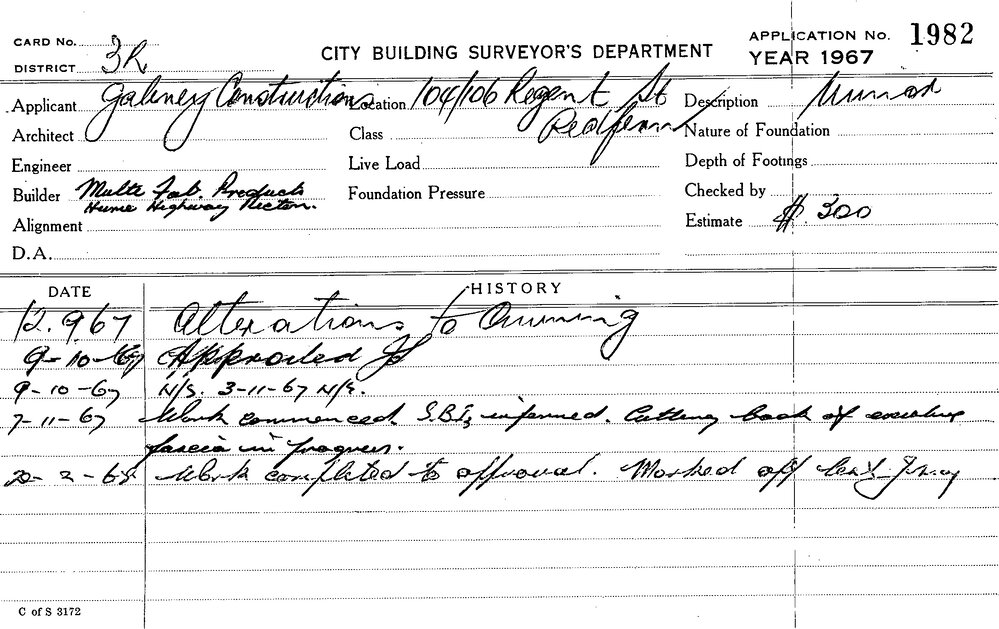 CARD No.
CITY BUILDING SURVEYOR'S DEPARTMENT
APPLICATION No. 1982
DISTRICT 3R
YEAR 1967
Applicant Gabney Constructions
Location 104/106 Regent St
Redfern
Description
Architect
Class
Nature of Foundation
Engineer
Live Load
Depth of Footings
Builder Multi Fab. Products
Hume Highway
Foundation Pressure
Checked by
Alignment
Estimate $ 300
D.A.
DATE
HISTORY
12.9.67 Alterations to Awning
9-10-67 Approved
9-10-67 N/S. 3-11-67 N/S.
7-11-67 Work commenced. S.B.I. informed. Cutting back of existing
fascia in progress.
20-2-68 Work completed to approval. Marked off
C of S 3172